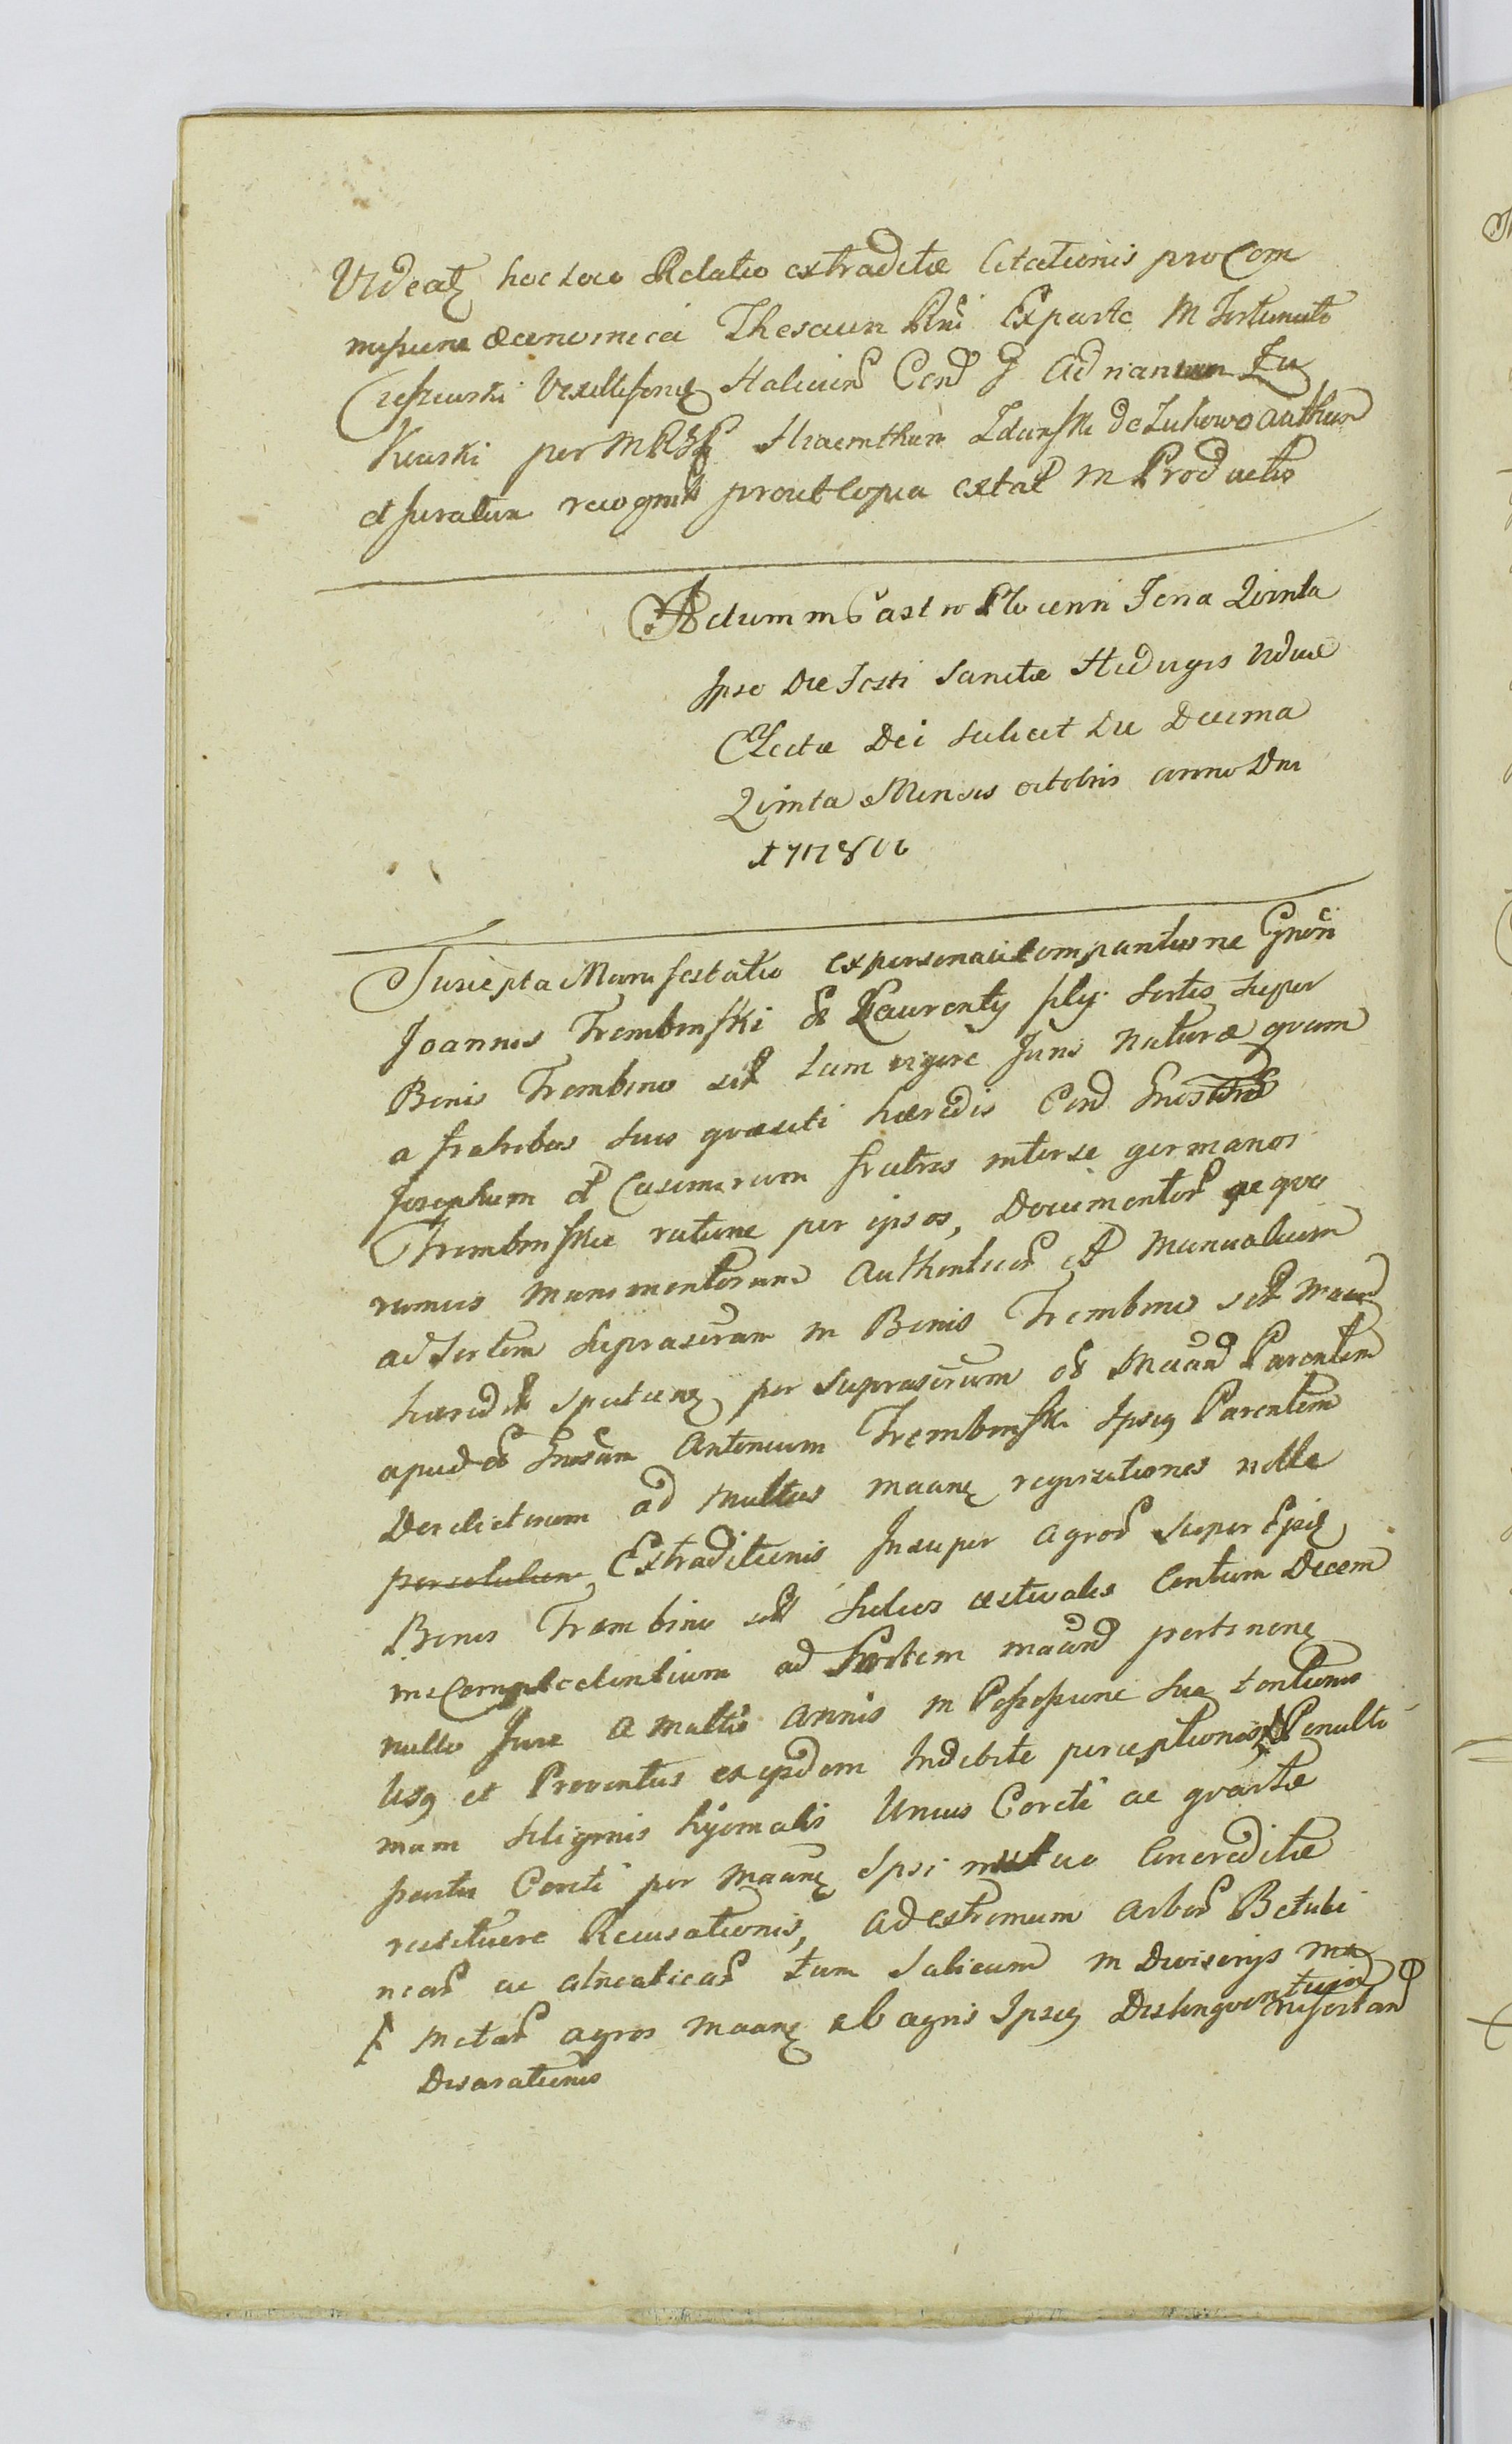 Videatz hoc Loco Relatio extraditæ Citationis pro Com
missione œconomica Thesauri Rni Ex parte M Fortunato
Cieszewski Vexilliferiz Halicien Con G Adrianum Zu
Kowski per M Hiacinthum Zdunski de Zukowo authen
et juratum recognit prout Copia extat in Productis
Actum in Castro Plocenn Feria Qvinta
Ipso Die Festi Sanctæ Hedvigis Viduæ
Electæ Dei scilicet Die Decima
Qvinta Mensis octobris anno Dni
Suscepta Manifestatio ex personali Comparitione Gnosi
Joannis Trembinski & Laurentÿ filÿ Sortis super
Bonis Trembino sit tam vigore Juris naturæ qvam
a fratribus suis qvæsiti hæredis Con Gnosos
Josephum et Casimirum fratres inter se germanos
Trembinskie ratione per ipsos, Documentor ac qvo
rumvis munimentorum authenticor et Manualium
ad Sortem suprascram in Bonis Trembino sit Maan
hæredit spectanz per suprascrum & Maan Parentem
apud & Gnosum Antonium Trembinski Ipsoz Parentem
Derelictorum ad multas maanz reqvisitiones nolle
persolutum, Extraditionis Insuper agror super Ipsiz
Bonis Trembino sit Sulcos æstivales Centum Decem
in se Complectentium ad Sortem maan pertinenz
nullo Jure a multis annis in Possessione sua tentionis
usq et Proventus ex ijsdem Indebite perceptionis, Penulti
mam siliginis hyemalis Unius Coreti ac qvartæ
partis Coreti per maanz Ipsi mutuo Concreditæ
restituere Recusationis, ad extremum arbor Betuli
near ac alneaticar tum Salicum in Divisorijs
metar agros maanz ab agris Ipsoz Distingventium
Disarationis